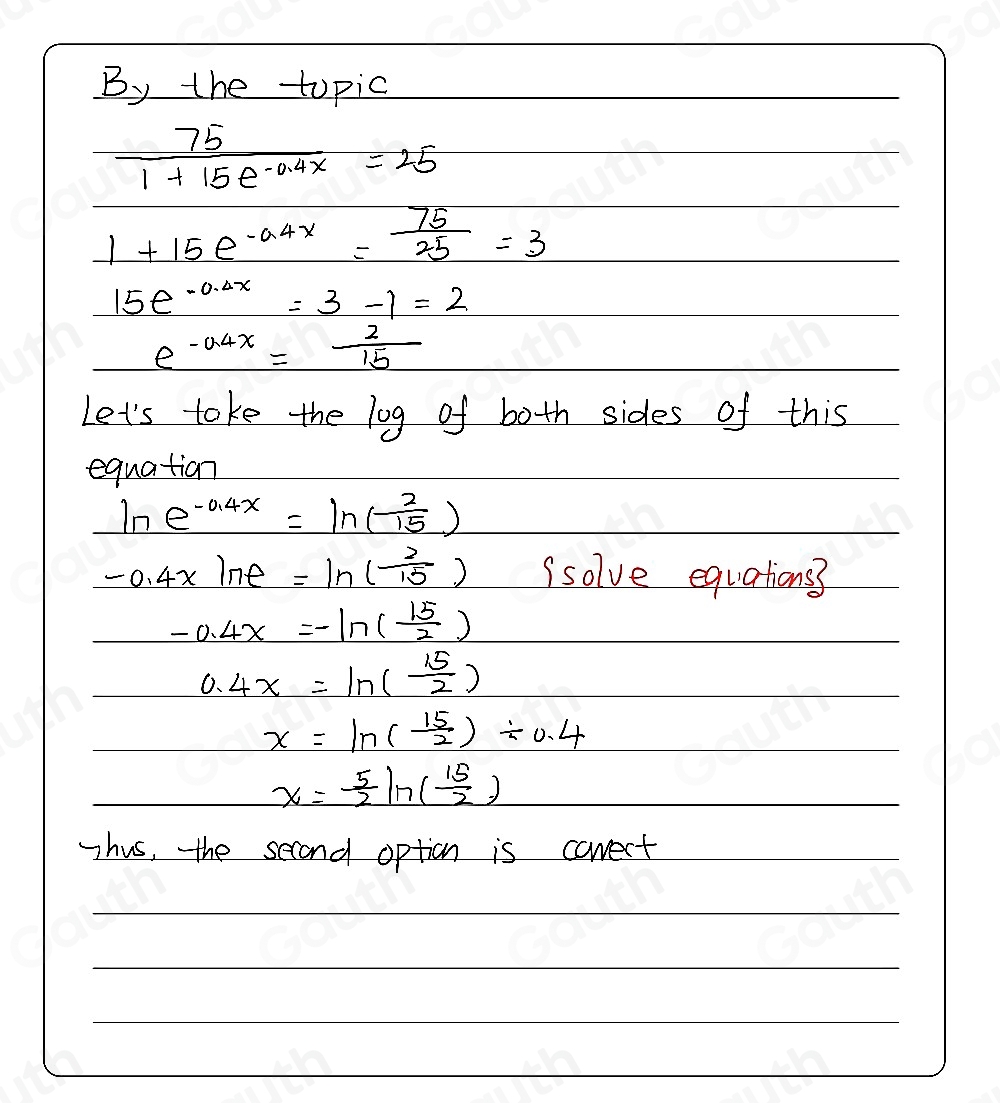 By the topic
75 / (1 + 15e^-0.4x) = 25
1 + 15e^-0.4x = 75/25 = 3
15e^-0.4x = 3 - 1 = 2
e^-0.4x = 2/15
Let's take the log of both sides of this
equation
ln e^-0.4x = ln(2/15)
-0.4x lne = ln(2/15) {solve equations}
-0.4x = -ln(15/2)
0.4x = ln(15/2)
x = ln(15/2) ÷ 0.4
x = 5/2 ln(15/2)
Thus, the second option is correct
Gauth